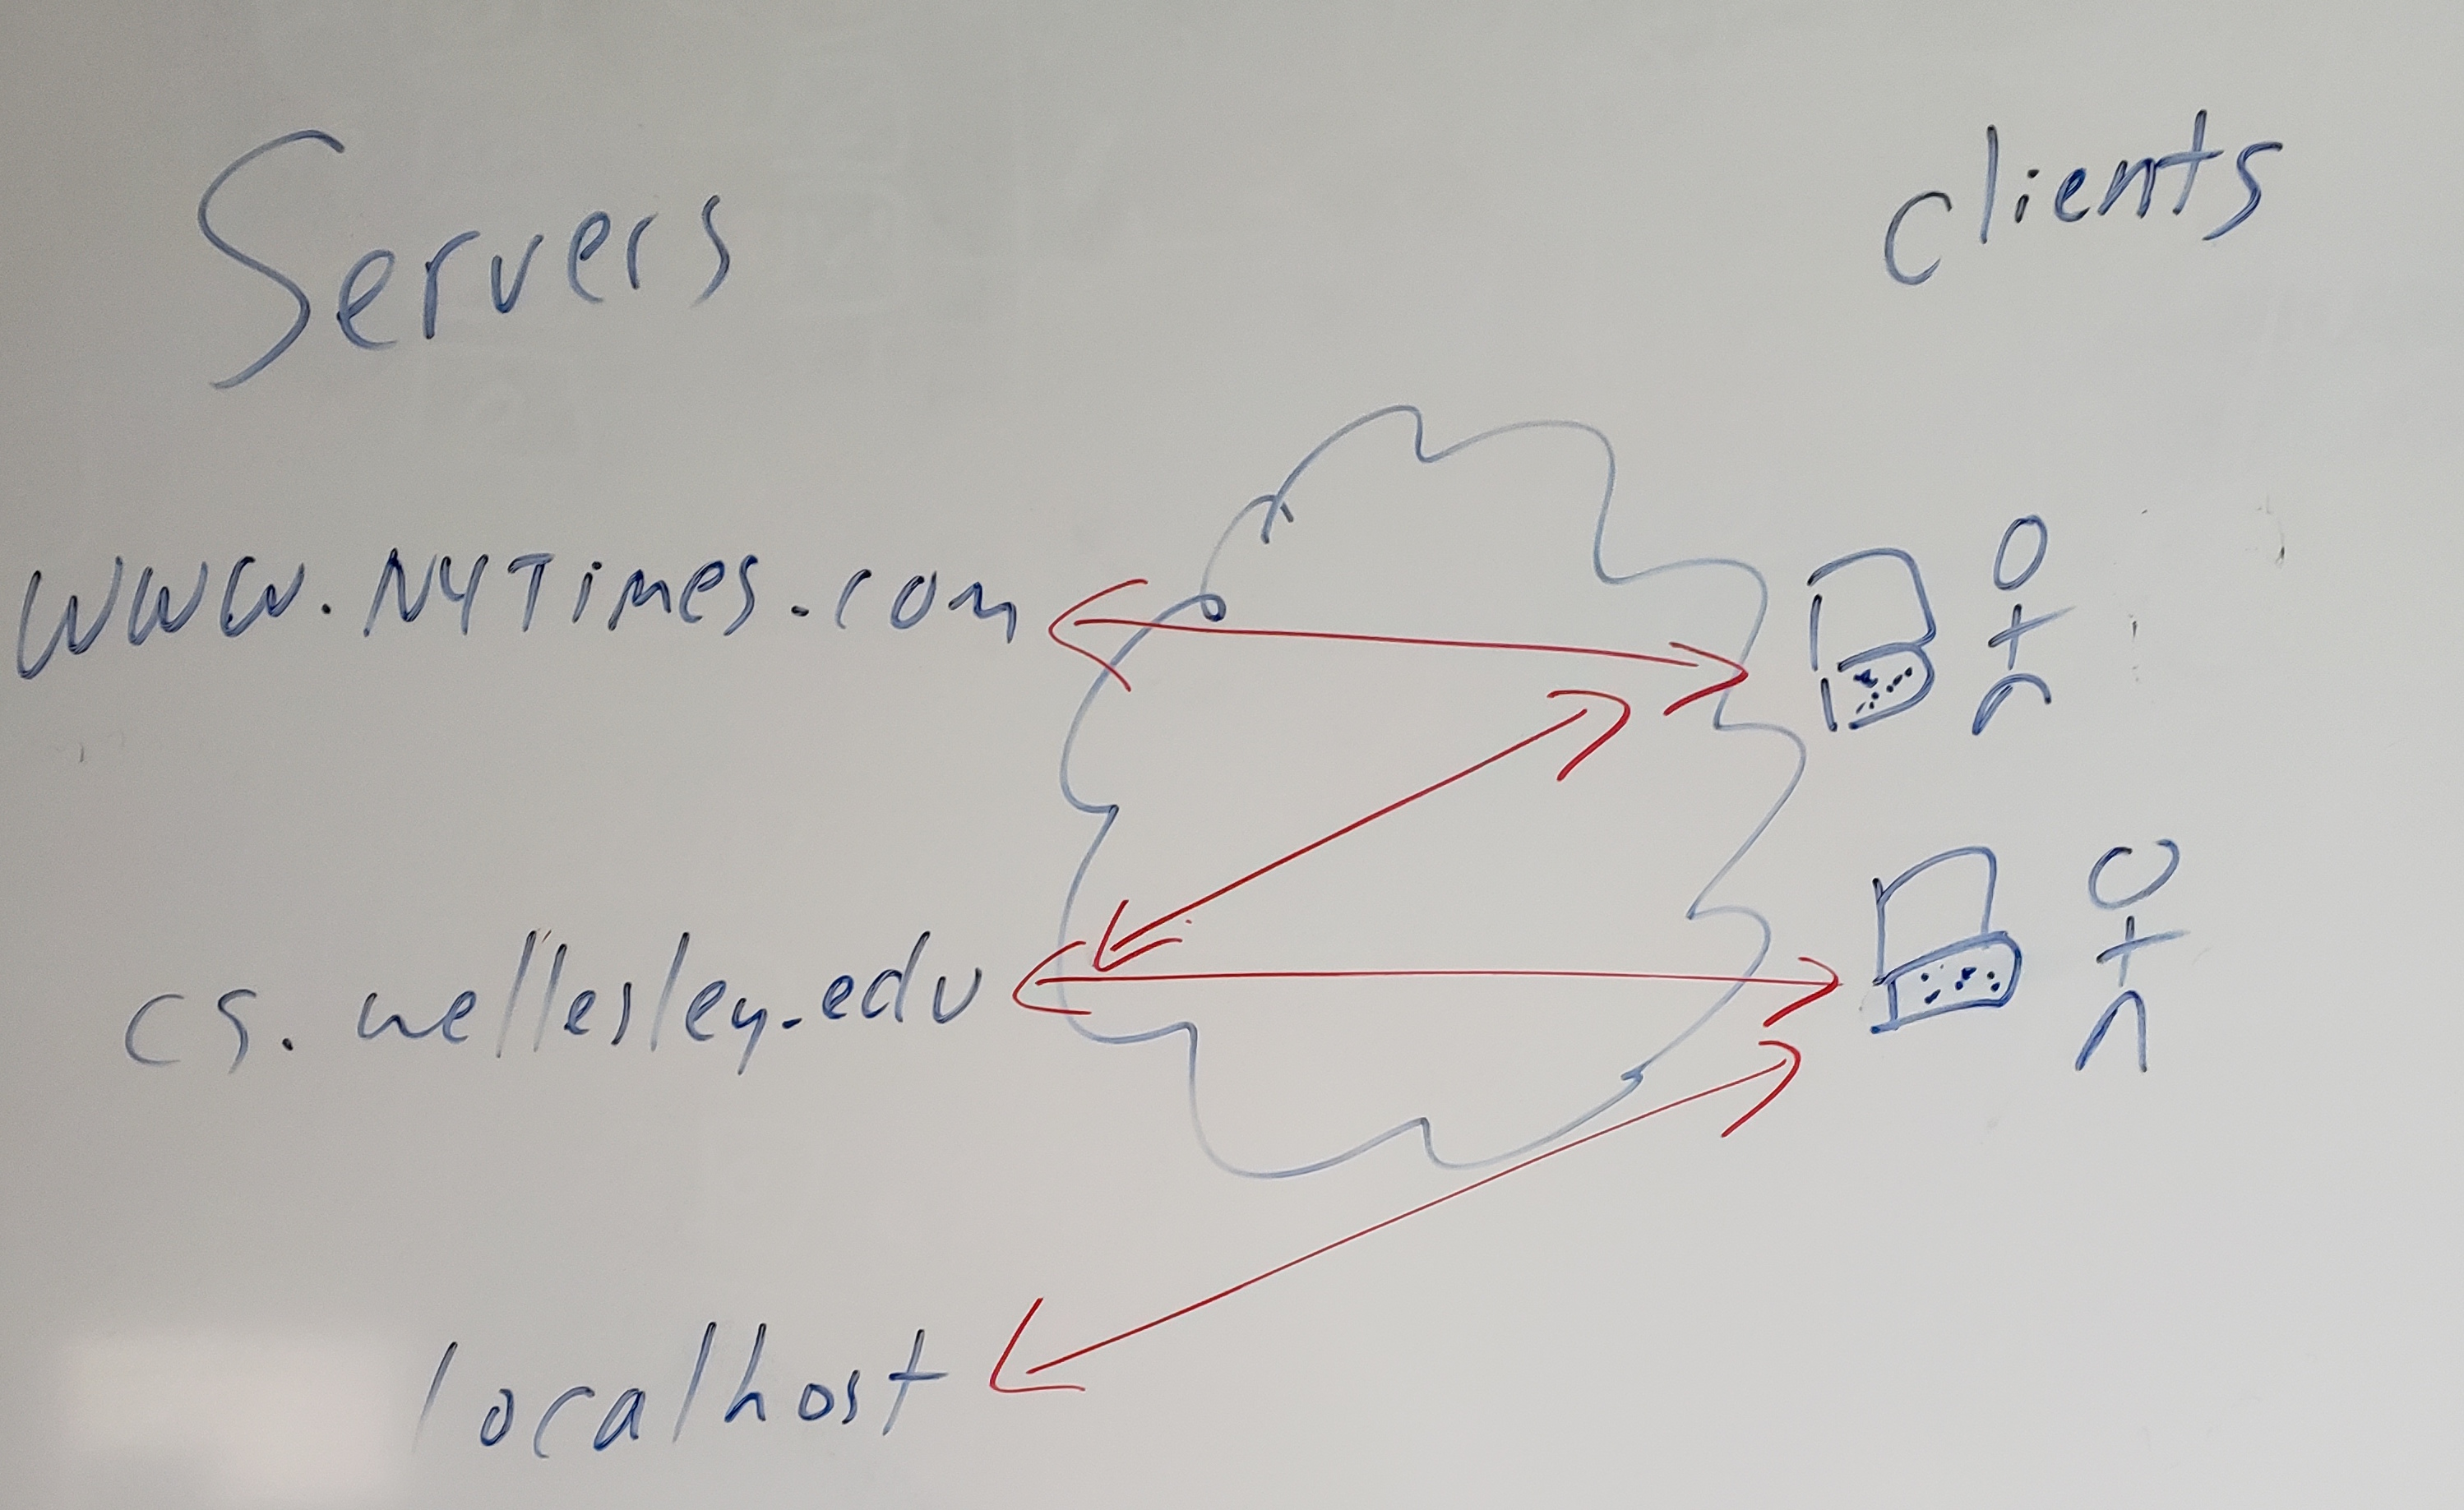 Servers
clients
www.NYTimes.com
cs.wellesley.edu
localhost